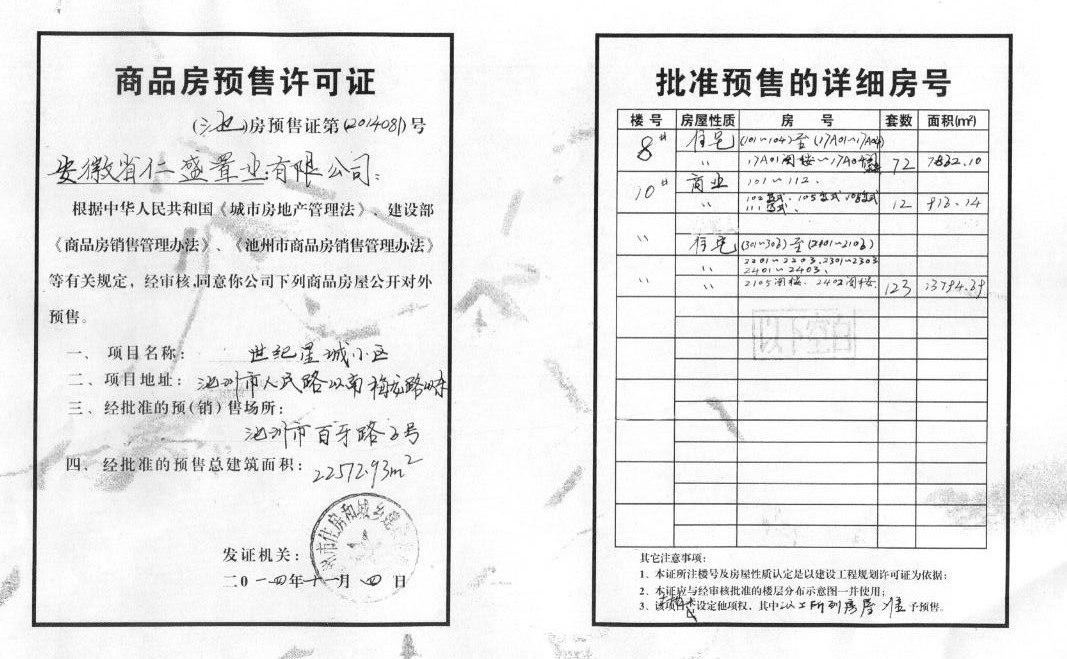 商品房预售许可证
(池)房预售证第(201408)号
安徽省仁盛置业有限公司：
根据中华人民共和国《城市房地产管理法》、建设部
《商品房销售管理办法》、《池州市商品房销售管理办法》
等有关规定，经审核,同意你公司下列商品房屋公开对外
预售。
一、项目名称： 世纪星城小区
二、项目地址： 池州市人民路以南 路以东
三、经批准的预(销)售场所：
池州市百牙路 号
四、经批准的预售总建筑面积： 22572.93m²
市住房和城乡建
发证机关：
二0一四年十一月四日
批准预售的详细房号
楼号 房屋性质 房号 套数 面积(m²)
8# 住宅 (101～104)至(17A01～17A04)
〃 17A01阁楼～17A04阁楼 72 7832.10
10# 商业 101～112.
〃 102 、105 、108 12
111
〃 住宅 (301～303)至(2101～2103)
〃 2201～2203.2301～2303
2401～2403、
〃 〃 2105阁楼、2402阁楼. 123 13794.39
以下空白
其它注意事项：
1、本证所注楼号及房屋性质认定是以建设工程规划许可证为依据；
2、本证应与经审核批准的楼层分布示意图一并使用；
3、该项 设定他项权，其中以上所列房屋准予预售。